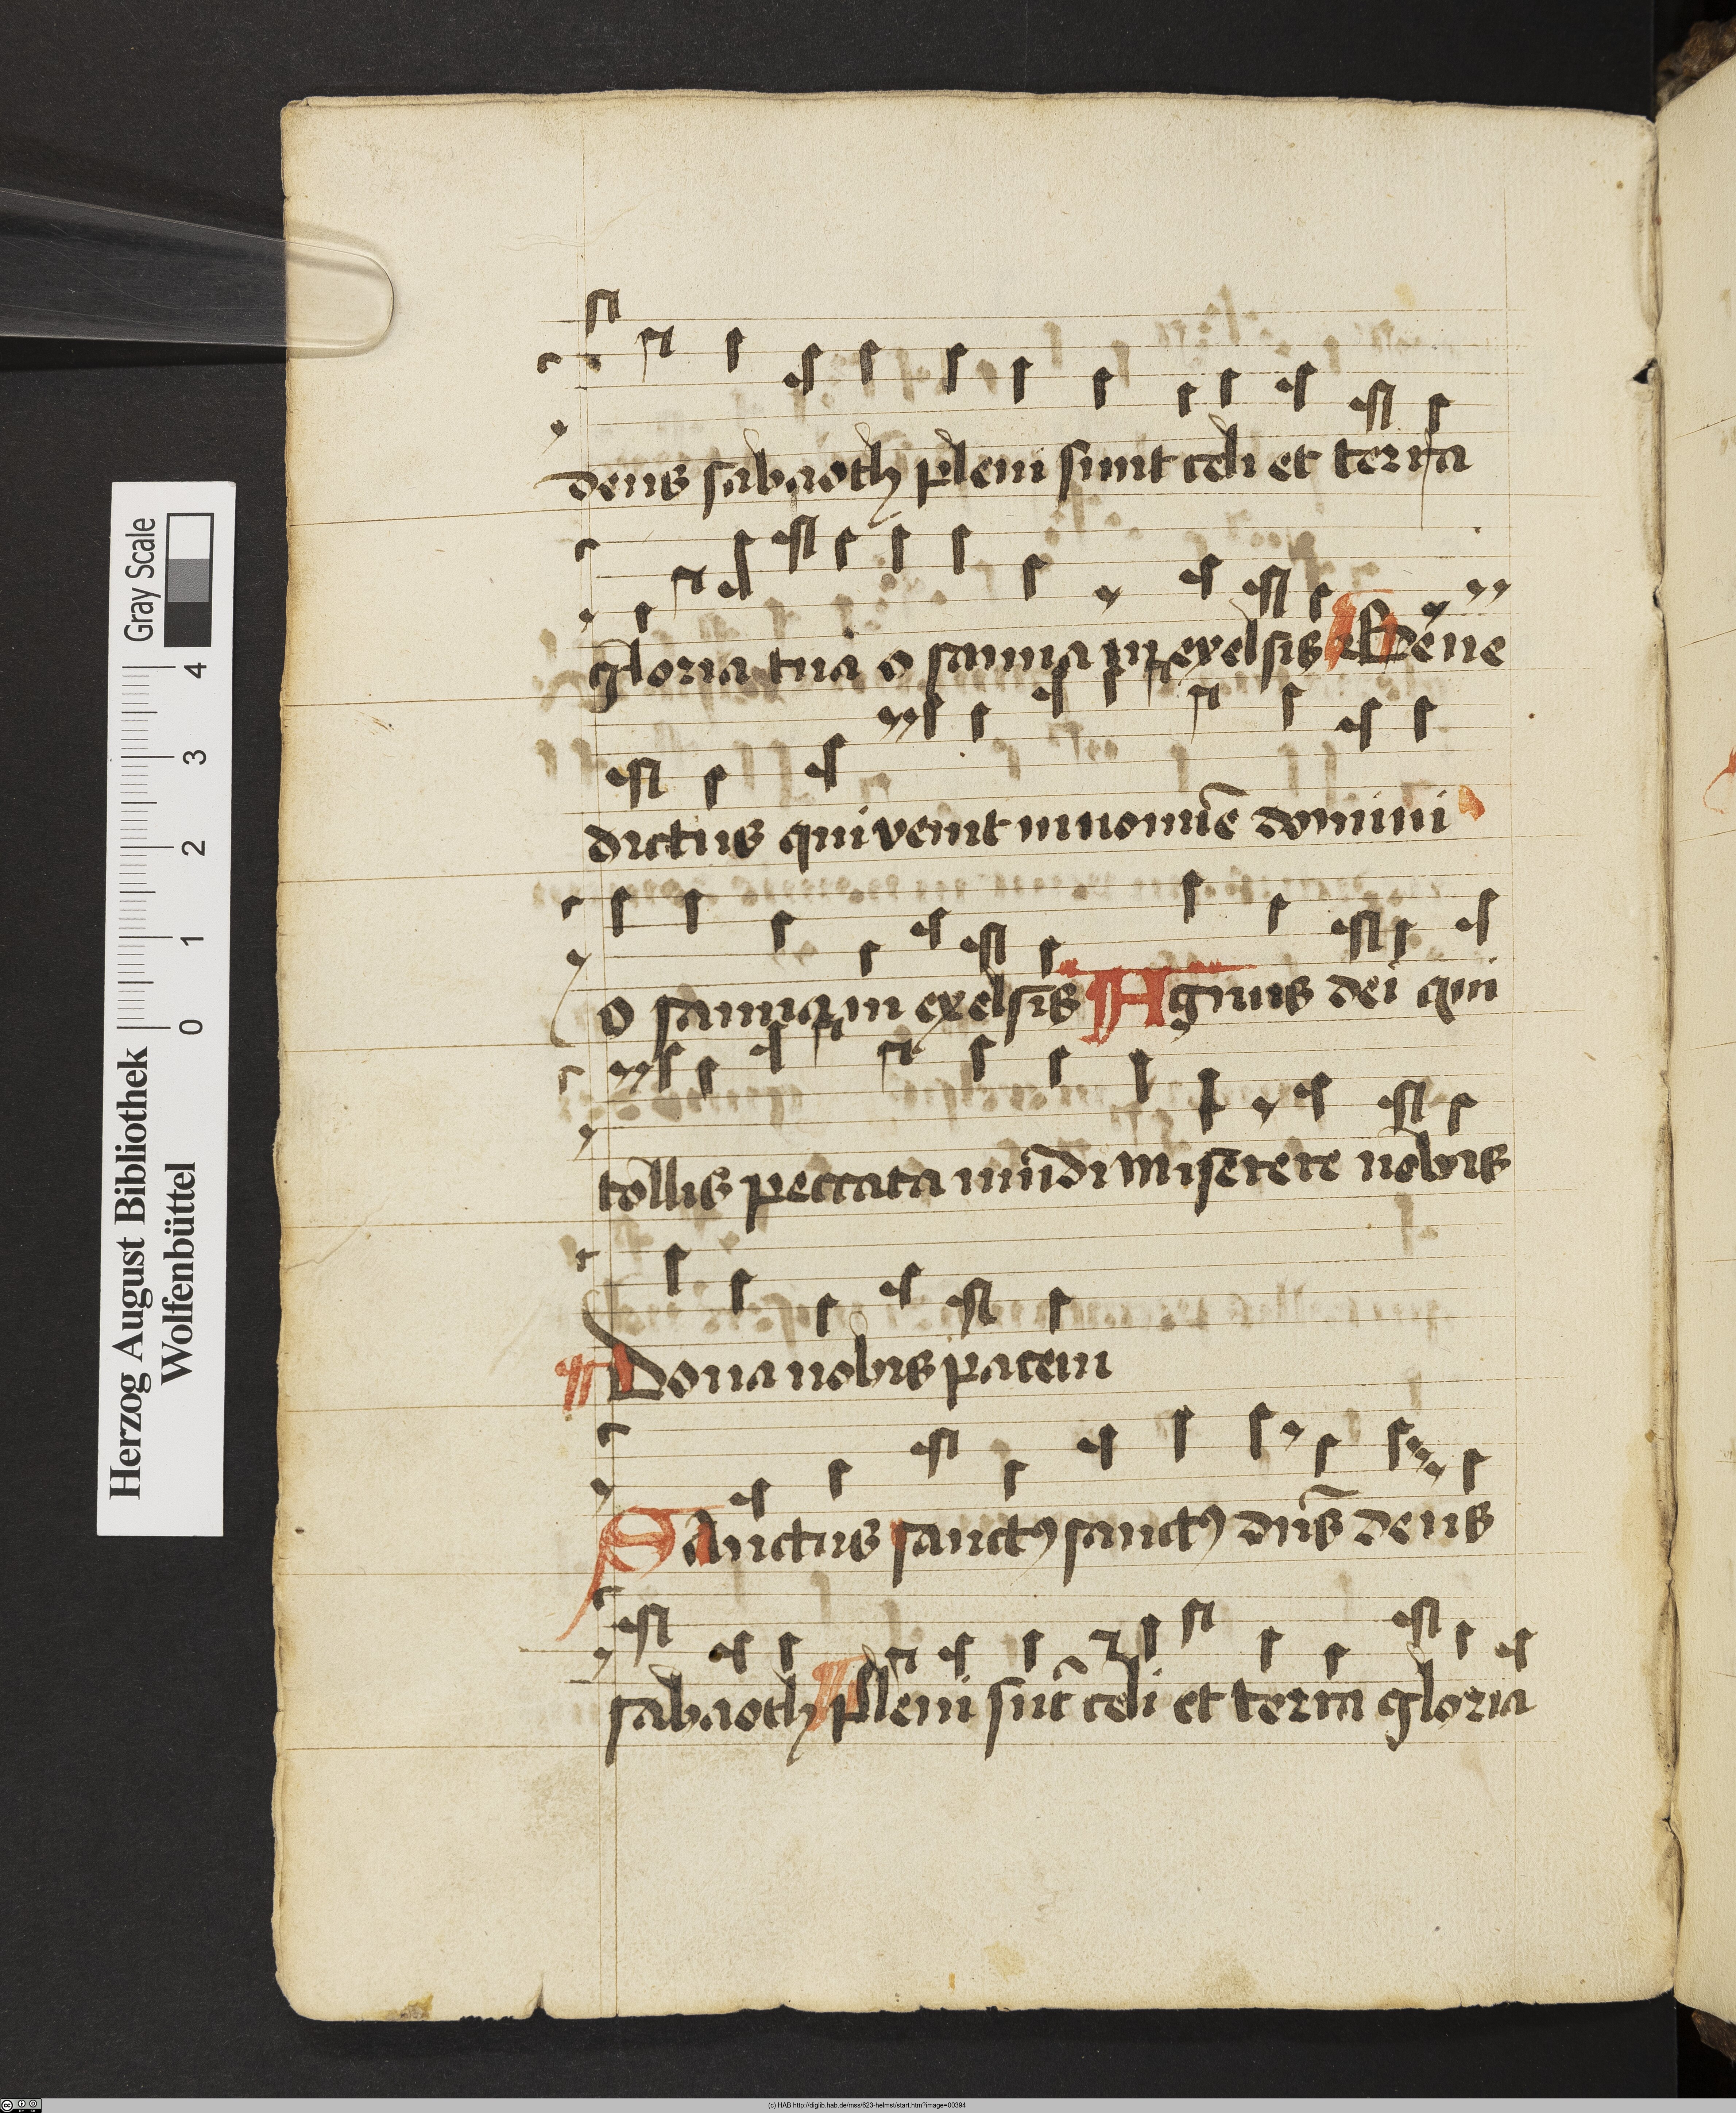 deus sabaoth pleni sunt celi et terra
gloria tua o sanna in exelsis Bene
dictus qui venit in nomīe domini
o sanna in exelsis Agnus dei qui
tollis peccata mūdi miserere nobis
Dona nobis pacem
Sanctus sanctꝰ sanctꝰ dn̄s deus
sabaoth pleni sūt celi et terra gloria
Herzog August Bibliothek
Wolfenbüttel
Gray Scale
0 1 2 3 4
(c) HAB http://diglib.hab.de/mss/623-helmst/start.htm?image=00394